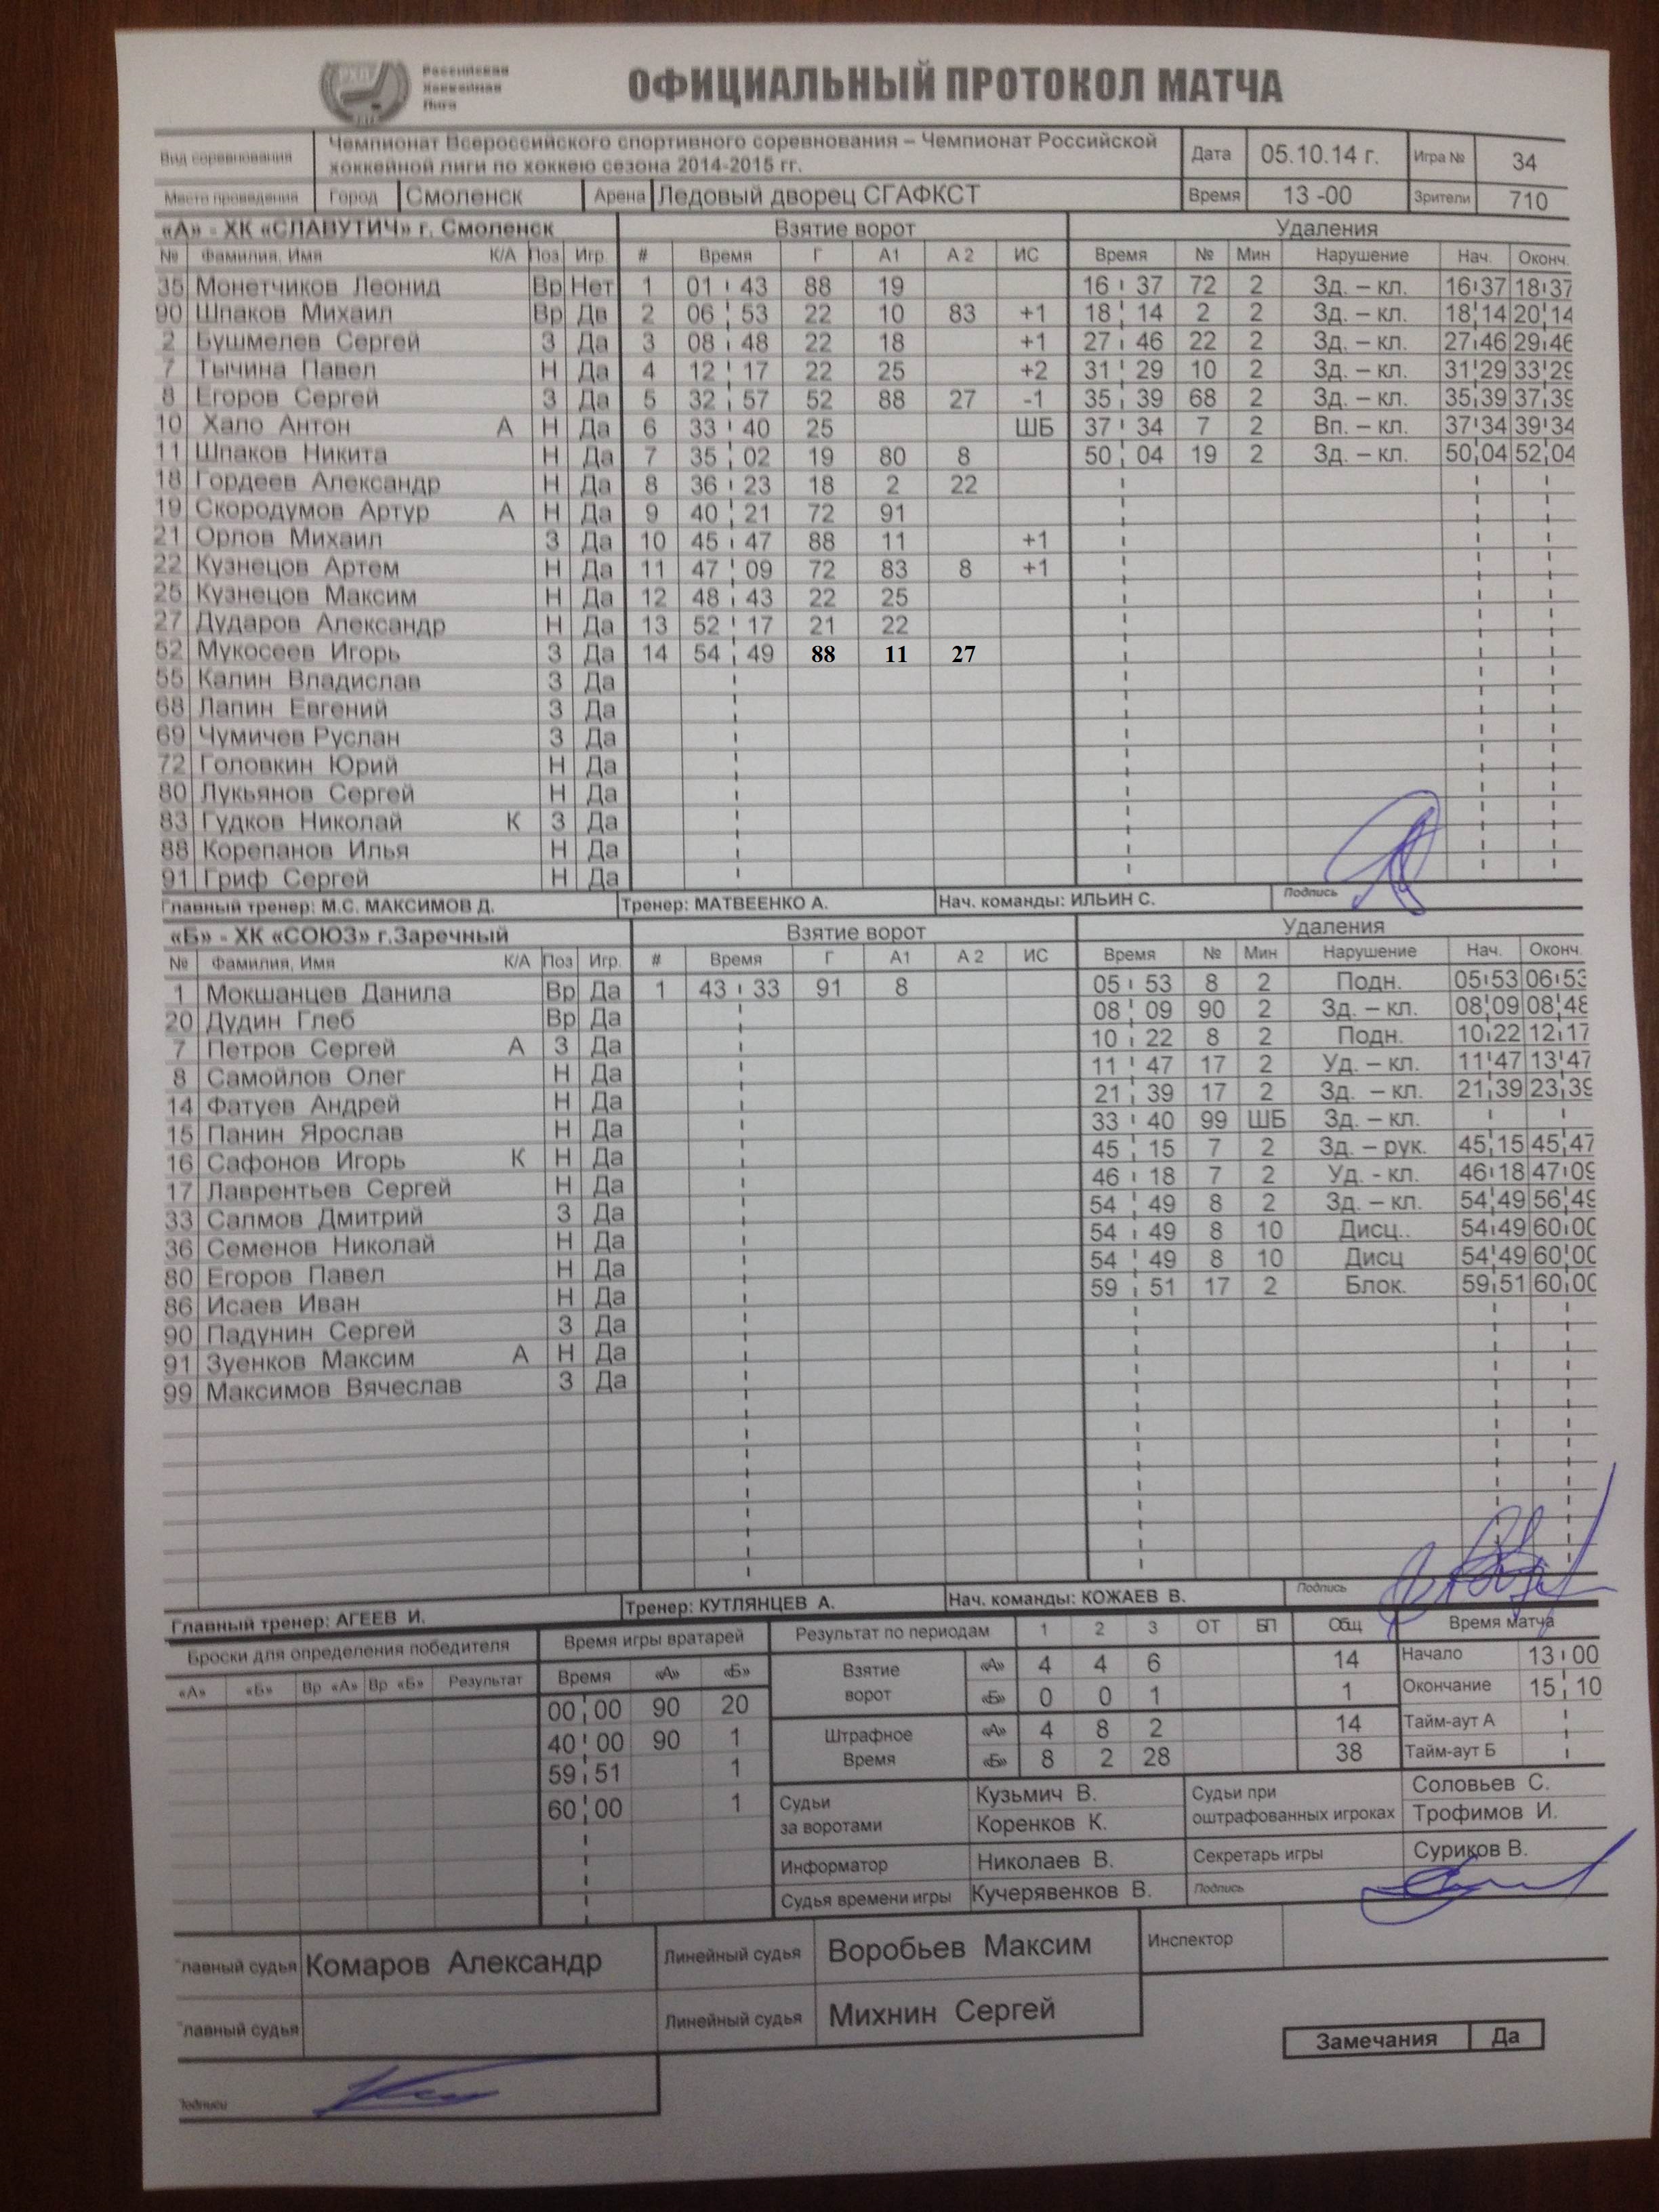 Российская
Хоккейная
Лига
ОФИЦИАЛЬНЫЙ ПРОТОКОЛ МАТЧА
Вид соревнования Чемпионат Всероссийского спортивного соревнования – Чемпионат Российской хоккейной лиги по хоккею сезона 2014-2015 гг. Дата 05.10.14 г. Игра № 34
Место проведения Город Смоленск Арена Ледовый дворец СГАФКСТ Время 13 -00 Зрители 710
«А» - ХК «СЛАВУТИЧ» г. Смоленск Взятие ворот Удаления
№ Фамилия, Имя К/А Поз Игр. # Время Г А1 А 2 ИС Время № Мин Нарушение Нач. Оконч.
35 Монетчиков Леонид Вр Нет 1 01 43 88 19 16 37 72 2 Зд. – кл. 16 37 18 37
90 Шпаков Михаил Вр Да 2 06 53 22 10 83 +1 18 14 2 2 Зд. – кл. 18 14 20 14
2 Бушмелев Сергей З Да 3 08 48 22 18 +1 27 46 22 2 Зд. – кл. 27 46 29 46
7 Тычина Павел Н Да 4 12 17 22 25 +2 31 29 10 2 Зд. – кл. 31 29 33 29
8 Егоров Сергей З Да 5 32 57 52 88 27 -1 35 39 68 2 Зд. – кл. 35 39 37 39
10 Хало Антон А Н Да 6 33 40 25 ШБ 37 34 7 2 Вп. – кл. 37 34 39 34
11 Шпаков Никита Н Да 7 35 02 19 80 8 50 04 19 2 Зд. – кл. 50 04 52 04
18 Гордеев Александр Н Да 8 36 23 18 2 22
19 Скородумов Артур А Н Да 9 40 21 72 91
21 Орлов Михаил З Да 10 45 47 88 11 +1
22 Кузнецов Артем Н Да 11 47 09 72 83 8 +1
25 Кузнецов Максим Н Да 12 48 43 22 25
27 Дударов Александр Н Да 13 52 17 21 22
52 Мукосеев Игорь З Да 14 54 49 88 11 27
55 Калин Владислав З Да
68 Лапин Евгений З Да
69 Чумичев Руслан З Да
72 Головкин Юрий Н Да
80 Лукьянов Сергей Н Да
83 Гудков Николай К З Да
88 Корепанов Илья Н Да
91 Гриф Сергей Н Да
Главный тренер: М.С. МАКСИМОВ Д. Тренер: МАТВЕЕНКО А. Нач. команды: ИЛЬИН С. Подпись
«Б» - ХК «СОЮЗ» г.Заречный Взятие ворот Удаления
№ Фамилия, Имя К/А Поз Игр. # Время Г А1 А 2 ИС Время № Мин Нарушение Нач. Оконч.
1 Мокшанцев Данила Вр Да 1 43 33 91 8 05 53 8 2 Подн. 05 53 06 53
20 Дудин Глеб Вр Да 08 09 90 2 Зд. – кл. 08 09 08 48
7 Петров Сергей А З Да 10 22 8 2 Подн. 10 22 12 17
8 Самойлов Олег Н Да 11 47 17 2 Уд. – кл. 11 47 13 47
14 Фатуев Андрей Н Да 21 39 17 2 Зд. – кл. 21 39 23 39
15 Панин Ярослав Н Да 33 40 99 ШБ Зд. – кл.
16 Сафонов Игорь К Н Да 45 15 7 2 Зд. – рук. 45 15 45 47
17 Лаврентьев Сергей Н Да 46 18 7 2 Уд. - кл. 46 18 47 09
33 Салмов Дмитрий З Да 54 49 8 2 Зд. – кл. 54 49 56 49
36 Семенов Николай Н Да 54 49 8 10 Дисц.. 54 49 60 00
80 Егоров Павел Н Да 54 49 8 10 Дисц 54 49 60 00
86 Исаев Иван Н Да 59 51 17 2 Блок. 59 51 60 00
90 Падунин Сергей З Да
91 Зуенков Максим А Н Да
99 Максимов Вячеслав З Да
Главный тренер: АГЕЕВ И. Тренер: КУТЛЯНЦЕВ А. Нач. команды: КОЖАЕВ В. Подпись
Броски для определения победителя Время игры вратарей Результат по периодам 1 2 3 ОТ БП Общ Время матча
«А» «Б» Вр «А» Вр «Б» Результат Время «А» «Б» Взятие ворот «А» 4 4 6 14 Начало 13 00
00 00 90 20 «Б» 0 0 1 1 Окончание 15 10
40 00 90 1 Штрафное Время «А» 4 8 2 14 Тайм-аут А
59 51 1 «Б» 8 2 28 38 Тайм-аут Б
60 00 1 Судьи за воротами Кузьмич В. Судьи при оштрафованных игроках Соловьев С.
Коренков К. Трофимов И.
Информатор Николаев В. Секретарь игры Суриков В.
Судья времени игры Кучерявенков В. Подпись
лавный судья Комаров Александр Линейный судья Воробьев Максим Инспектор
лавный судья Линейный судья Михнин Сергей
Замечания Да
Подписи